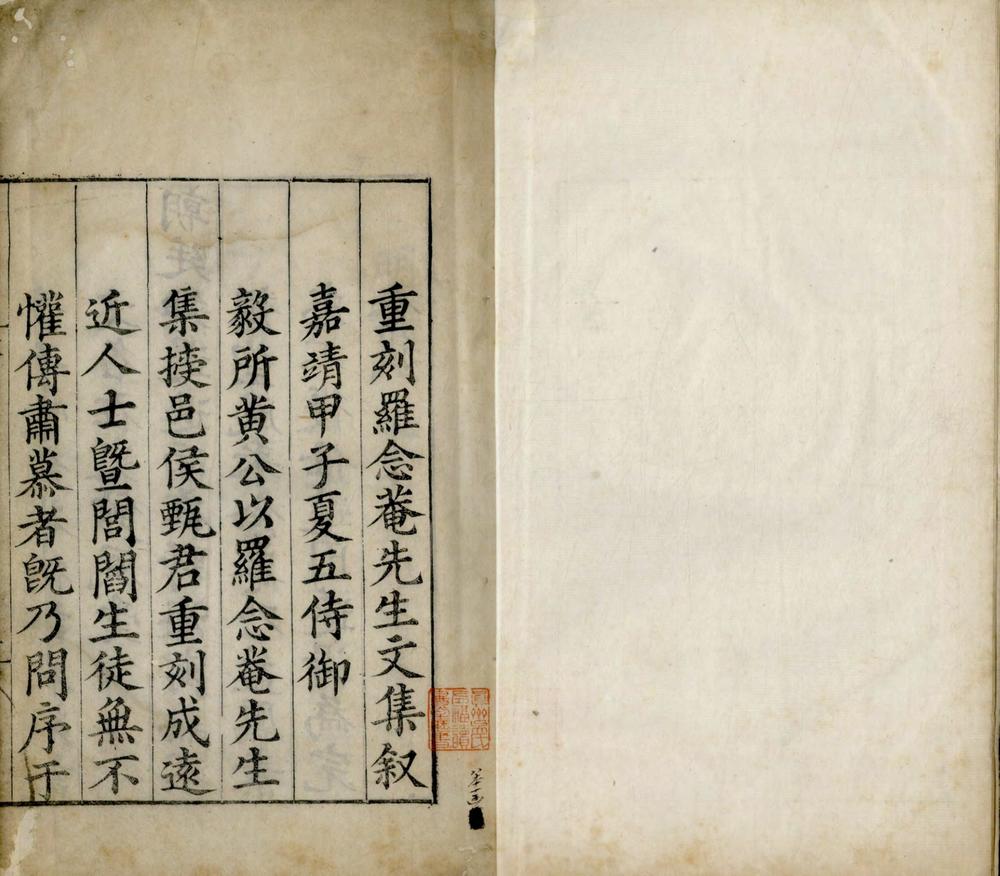 重刻羅念菴先生文集叙
嘉靖甲子夏五侍御
毅所黄公以羅念菴先生
集授邑侯甄君重刻成遠
近人士曁閭閻生徒無不
懽傳肅慕者旣乃問序于